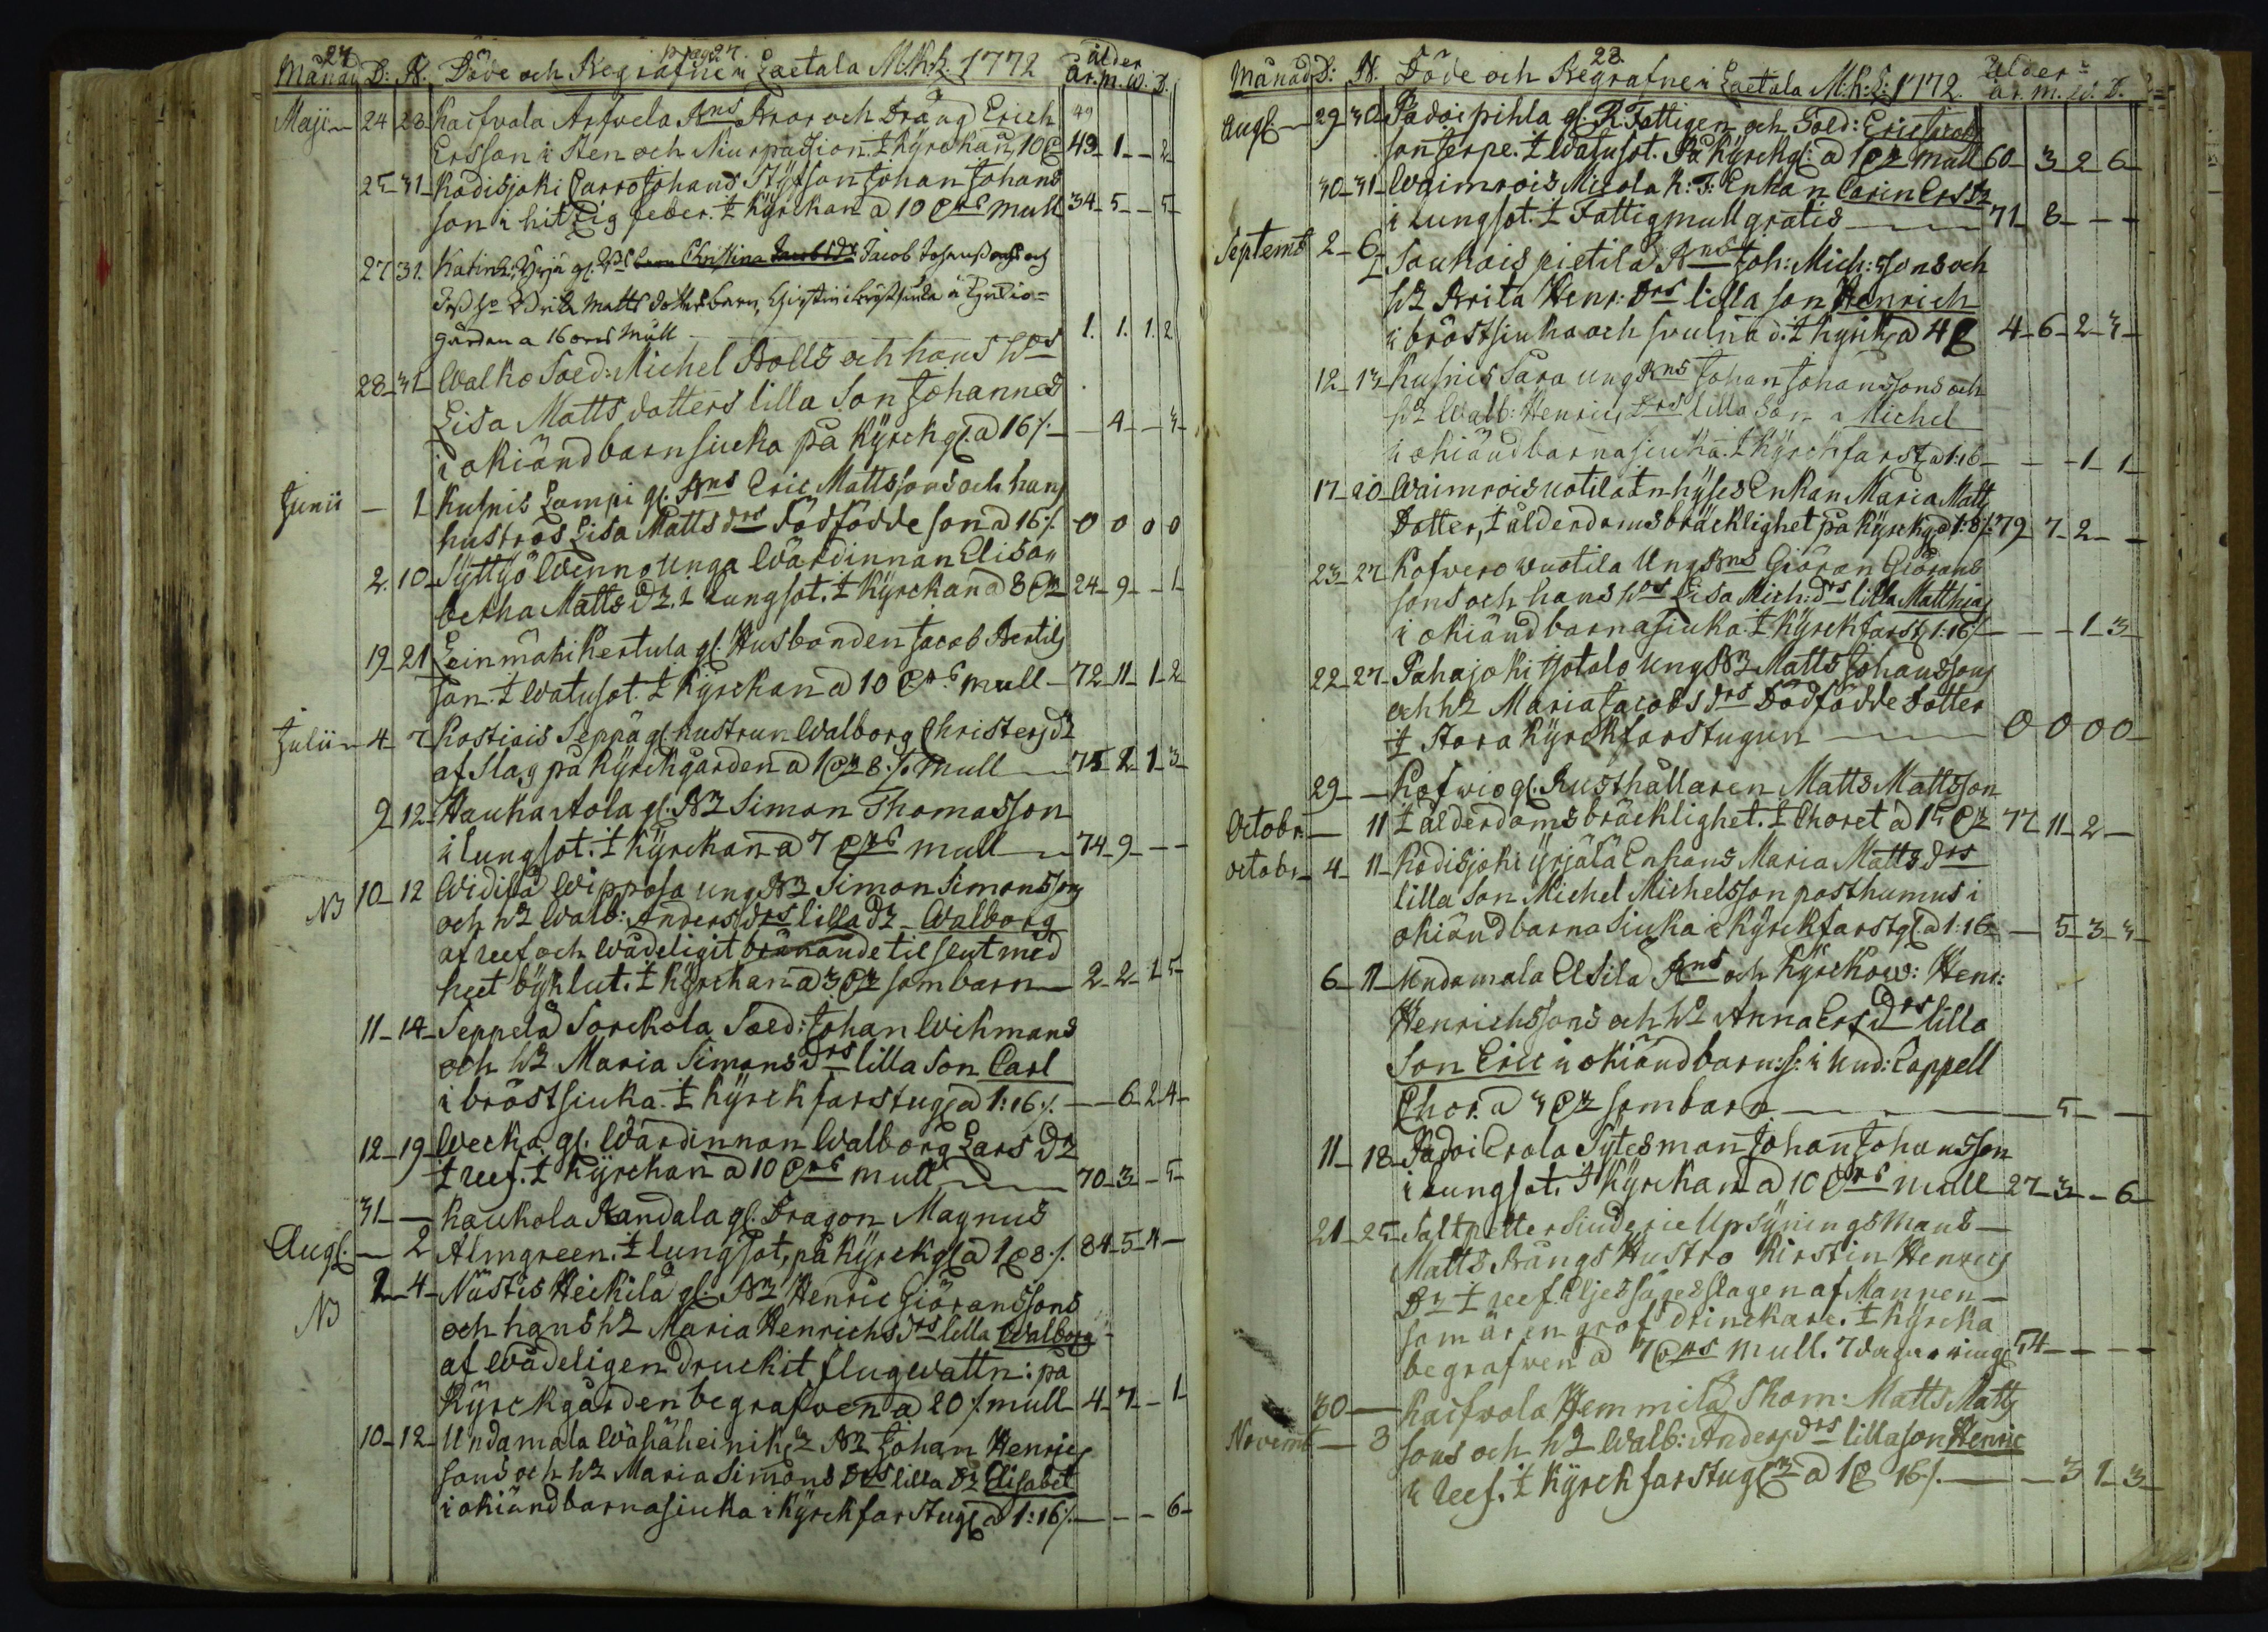 27
Månad D: N. Döde och Begrafne i Laetala M:K:Z: 1772 ålder år. m. w. D.
Maji 24 28 Kaifvala Arfvela Bns Bror och Dräng Erich 49
Ersson i Sten och Niurpassion. i Kyrckan, 10 49 1 - 2
25 31 Kodisjoki Carro Johans Styfson Johan Johans
son i hitzig feber. i Kyrckan a 10 mull 34 5 - 5
27 31 Jacob
barn,
gården a 16 öres mull 1. 1. 1. 2
28 31 Walko Sold: Michel Bolls och hans
Lisa Matts dotters lilla Son Johannes
i okiänd barnsiuka på Kyrckg: a 16 - 4 -
Junii - 1 Kusnis Lampi gl. Bns Eric Mattssons och hans
hustros Lisa Matts drs Dödfödde son a 16 0 0 0 0
2. 10 Syttyö Wenno unga Wärdinnan Elisa
betha Matts Dr. i Lungsot. i Kyrckan a 8 24 9 - 1
19 21 Leinmäki Kertula gl. Husbonden Jacob Bertils
son. i Watusot. i Kyrckan a 10 mull 72 11 1 2
Julii 4 Kostiais Seppä gl. hustrun Walborg Christersdr
af slag på Kyrckgården a 1 8 mull 75 1 3
9 12 Hauka Aola gl. Simon Thomasson
i lungsot. i Kyrckan a 7 mull 74 9 - -
NB 10 12 Widilä Wipposa ung Simon Simonssons
och Walb: Anders drs lilla Walborg
af reef och wådeligit brännande til slut med
heet byklut. i Kyrckan a 3 som barn 2 2 1 5
11 14 Seppelä Sorckola Sold: Johan Wikmans
och Maria Simons Drs lilla Son Carl
i bröstsiuka. i Kyrckfarstug a 1:16 - 6 2 4
12 19 Wecka gl. Wärdinnan Walborg Lars
i reef. i Kyrckan a 10 mull 70 3 - 5
31 - Kaukola Randala gl. Dragon Magnus
Aug. - 2 Almgreen. i lungsot, på Kyrckg a 1 8 84 5 4 -
NB 2 4 Nästis Heikilä gl. Henric Giöranssons
och hans Maria Henrichs drs lilla Walborg
af Wådeligen druckit flugwattn: på
Kyrckgården begrafwen a 20 mull 4 7 - 1
10 12 Undamala Wähäheinik Johan Henrics
sons och Maria Simons Drs lilla Elisabet
i okiänd barnasiuka i Kyrckfarstug a 1:16 - - - 6
28.
Månad D: N. Döde och Begrafne i Laetala M:K:Z: 1772. ålder år. m. w. D.
Aug 29 30 Padoi pihla gl. R. Fattigen och Sold: Eric Jacobs
son Serpe. i Watusot. På Kyrckg: a 1 mull 60 3 2 6
30 31 Waimrois Micola K: F: Enkan Carin Ers
i lungsot. i Fattigmull gratis 71 8 - -
Septemb 2 6 Soukais pietilä Bns Joh: Mich: Sons och
Brita Henr: Drs lilla son Henrich
i bröstsiuka och svulnad. i Kyrck a 4 4 6 2
12 13 Kusnis Sara ung Bns Johan Johanssons och
Walb: Henrics Drs lilla Son Michel
i okiänd barnasiuka. i Kyrckfarst a 1:16 - - 1 1
17 20 Waimrois uotila Inhyses Enkan Maria Matts
Dotter, i ålderdoms bräcklighet på Kyrckg a 1:8 79 7 2 -
23 27 Kofwero wuotila Ung Bns Giöran Giörans
sons och hans Lisa Mich: drs lilla Matthias
i okiänd barnasiuka. i Kyrckfarst 1:16 - - 1 3
22 27 Pahajoki Isotalo ung Matts Johanssons
och Maria Jacobs drs Dödfödde dotter
i Stora Kyrckfarstugun 0 0 0 0
29 - Kofwio gl. Rusthållaren Matts Mattsson
Octobr. - 11 i ålderdoms bräcklighet. i Choret a 15 77 11 2 -
Octobr 4 11 Kodisjoki Yrjälä Enkans Maria Matts drs
lilla Son Michel Michelsson posthumus i
okiänd barna siuka i Kyrckfarstg a 1:16 - 5 3
6 11 Undamala Elsilä Bns och Kyrckow: Henr:
Henrichssons och Anna Ers Drs lilla
Son Eric i okiänd barn:s: i Und: Cappell
Chor. a 3 som barn - 5 - -
11 18 Padoi Erola Sytesman Johan Johansson
i Lungsot. i Kyrckan a 10 mull 27 3 - 6
21 25 Saltpetter Siuderie Upsyningsmans
Matts Bångs Hustro Kirstin Henrics
Dr i reef. Eljes säges slagen af Mannen
som är en grof drinckare. i Kyrcka
begrafwen a 7 mull. 54 - - -
30 - Kaifwola Hemmilä Thom: Matts Matts
Novemb - 8 sons och Walb: Anders drs lilla son Henric
i reef. i Kyrckfarstug a 1 16 - 3 1 3